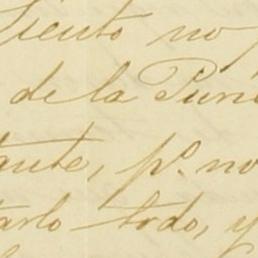 Siento no
de la Puri
ante, p.º no
tarlo todo, y